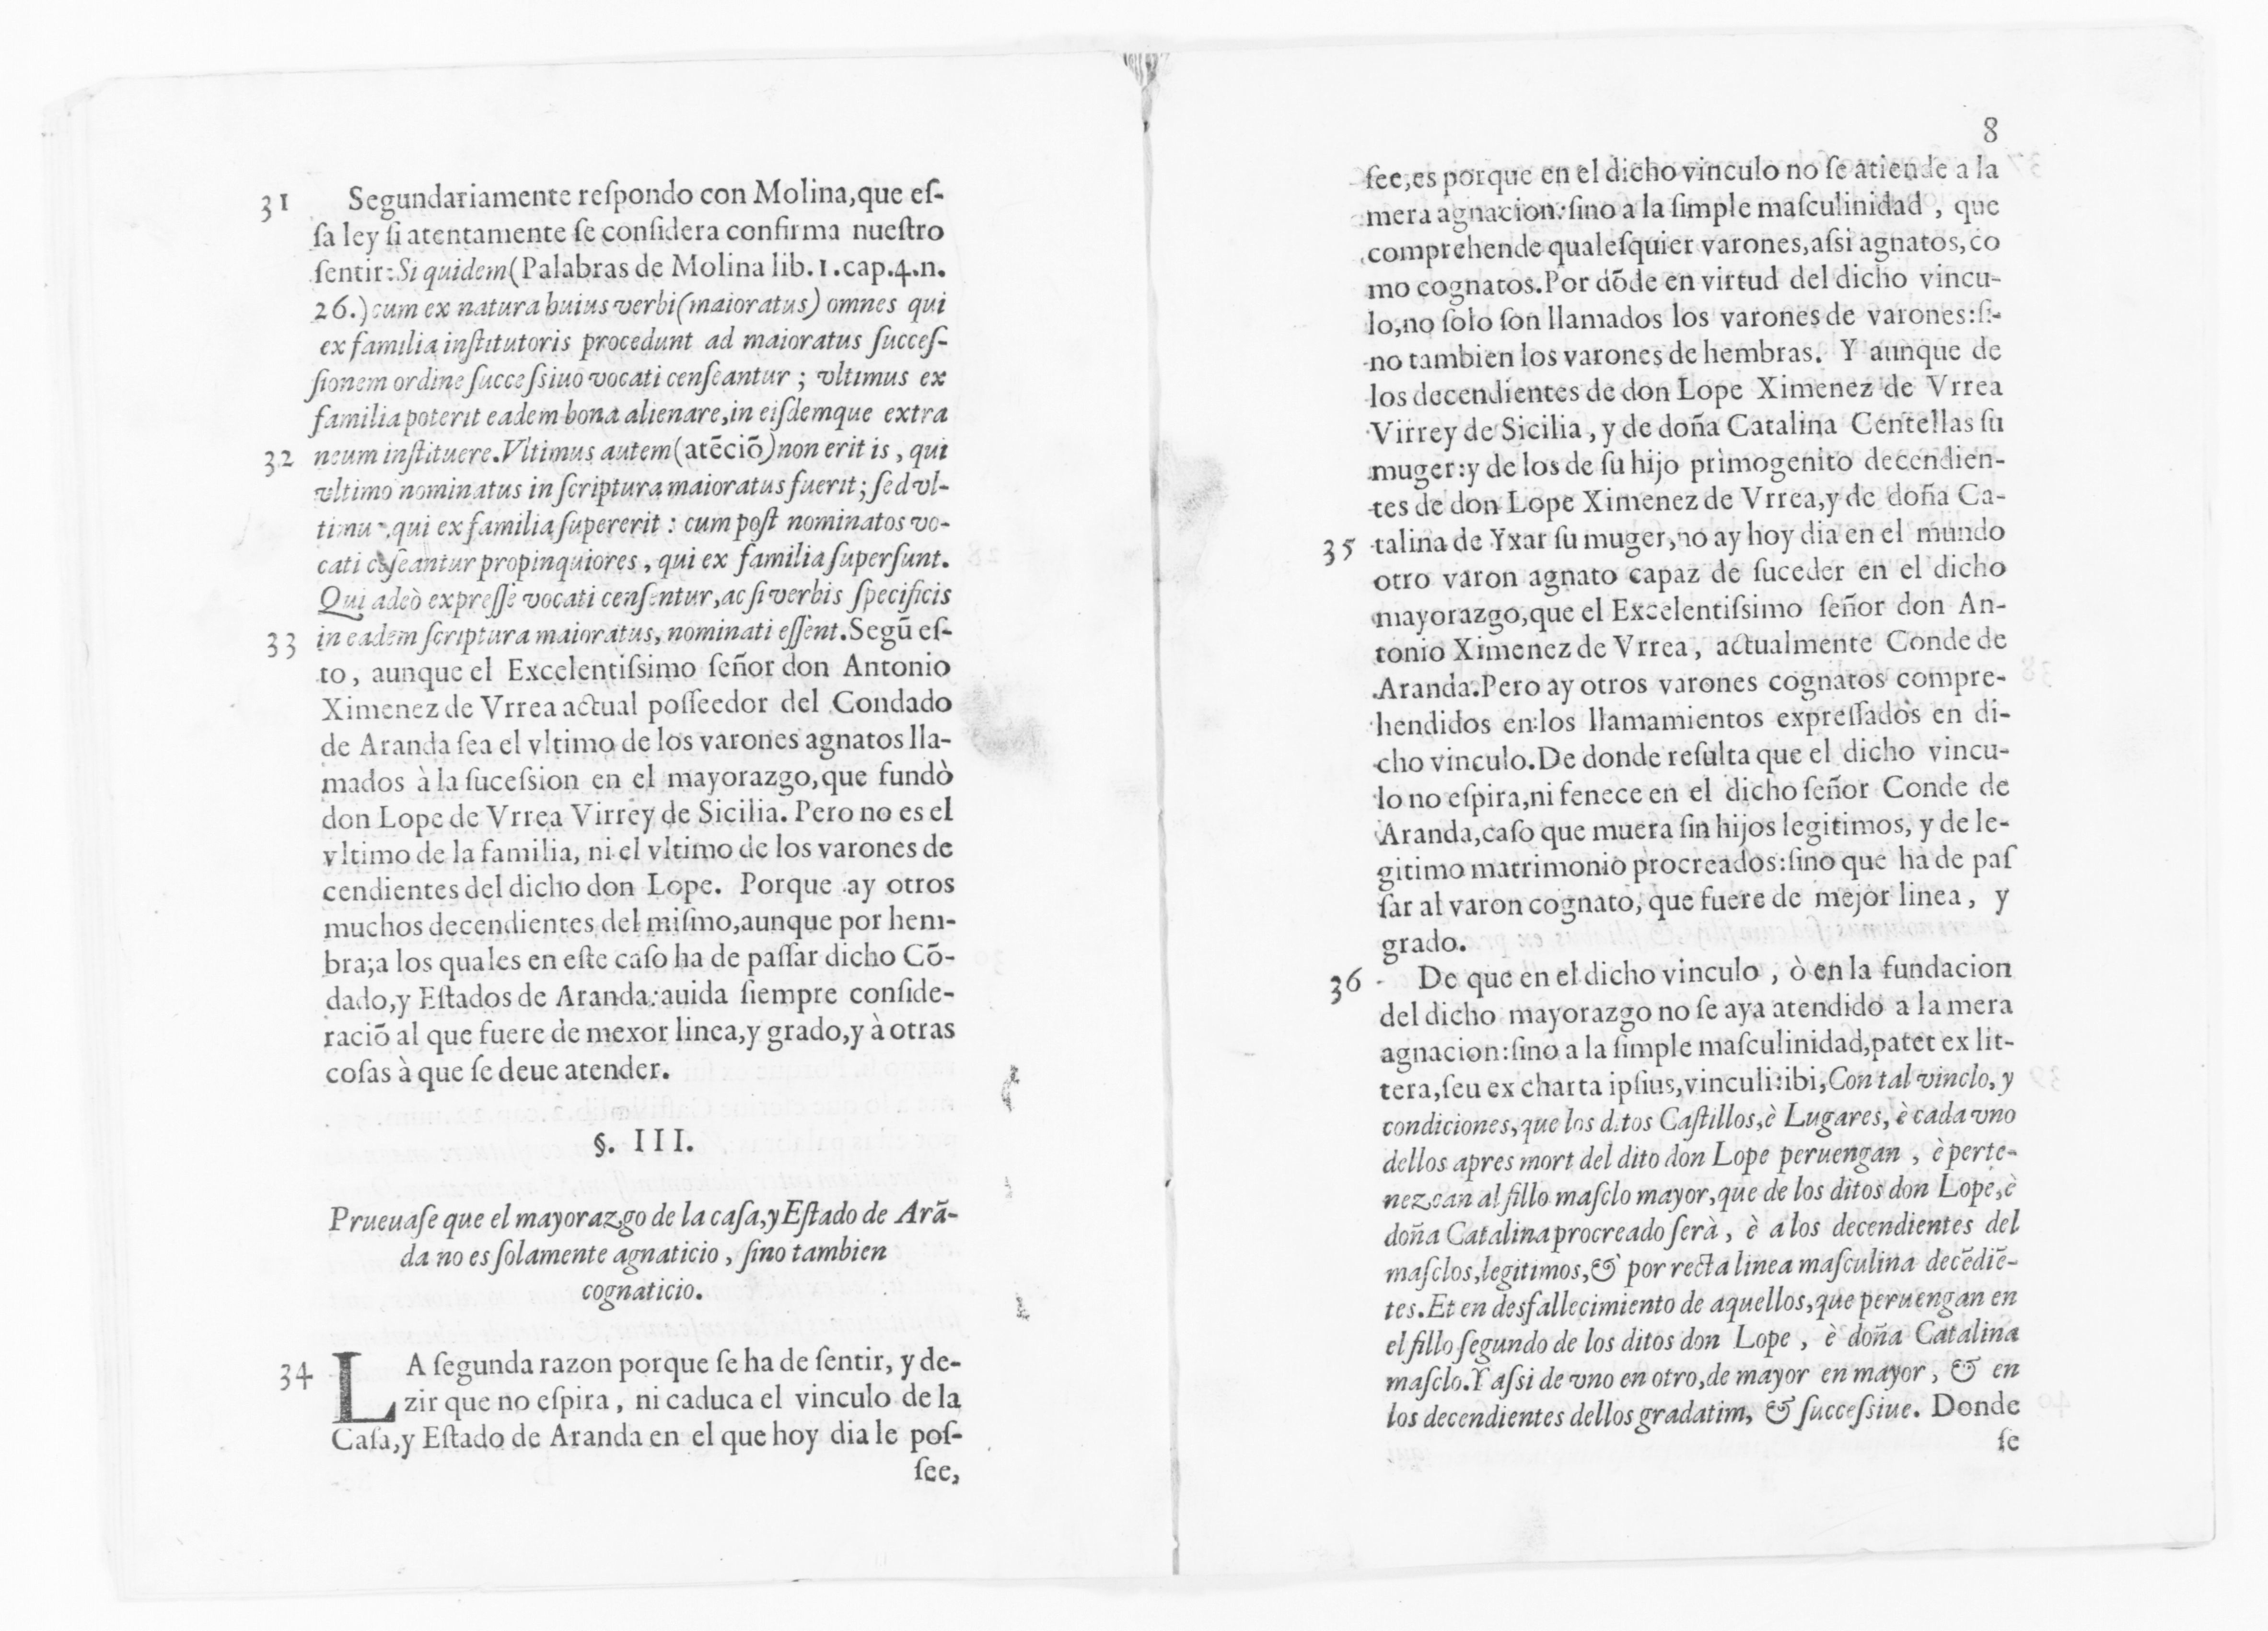 31 Segundariamente reſpondo con Molina,que eſ-
ſa ley ſi atentamente ſe conſidera confirma nueſtro
ſentir:Si quidem(Palabras de Molina lib.1.cap.4.n.
26.)cum ex natura huius verbi(maioratus) omnes qui
ex familia inſtitutoris procedunt ad maioratus ſucceſ-
ſionem ordine ſucceſsiuo vocati cenſeantur ; vltimus ex
familia poterit eadem bona alienare,in eiſdemque extra
32 neum inſtituere.Vltimus autem(atēciō)non erit is , qui
vltimo nominatus in ſcriptura maioratus fuerit; ſed vl-
timus,qui ex familia ſupererit : cum poſt nominatos vo-
cati cēſeantur propinquiores , qui ex familia ſuperſunt.
Qui adeò expreſſè vocati cenſentur,ac ſi verbis ſpecificis
33 in eadem ſcriptura maioratus, nominati eſſent.Segū eſ-
to , aunque el Excelentiſsimo ſeñor don Antonio
Ximenez de Vrrea actual poſſeedor del Condado
de Aranda ſea el vltimo de los varones agnatos lla-
mados à la ſuceſsion en el mayorazgo,que fundò
don Lope de Vrrea Virrey de Sicilia. Pero no es el
vltimo de la familia, ni el vltimo de los varones de
cendientes del dicho don Lope. Porque ay otros
muchos decendientes del miſmo,aunque por hem-
bra;a los quales en eſte caſo ha de paſſar dicho Cō-
dado,y Eſtados de Aranda:auida ſiempre conſide-
raciō al que fuere de mexor linea,y grado,y à otras
coſas à que ſe deue atender.
§. III.
Prueuaſe que el mayorazgo de la caſa,y Eſtado de Arā-
da no es ſolamente agnaticio , ſino tambien
cognaticio.
34 LA ſegunda razon porque ſe ha de ſentir, y de-
zir que no eſpira , ni caduca el vinculo de la
Caſa,y Eſtado de Aranda en el que hoy dia le poſ-
ſee,
8
ſee,es porque en el dicho vinculo no ſe atiende a la
mera agnacion:ſino a la ſimple maſculinidad , que
comprehende qualeſquier varones,aſsi agnatos,co
mo cognatos.Por dōde en virtud del dicho vincu-
lo,no ſolo ſon llamados los varones de varones:ſi-
no tambien los varones de hembras. Y aunque de
los decendientes de don Lope Ximenez de Vrrea
Virrey de Sicilia , y de doña Catalina Centellas ſu
muger:y de los de ſu hijo primogenito decendien-
tes de don Lope Ximenez de Vrrea,y de doña Ca-
35 talina de Yxar ſu muger,no ay hoy dia en el mundo
otro varon agnato capaz de ſuceder en el dicho
mayorazgo,que el Excelentiſsimo ſeñor don An-
tonio Ximenez de Vrrea , actualmente Conde de
Aranda.Pero ay otros varones cognatos compre-
hendidos en los llamamientos expreſſados en di-
cho vinculo.De donde reſulta que el dicho vincu-
lo no eſpira,ni fenece en el dicho ſeñor Conde de
Aranda,caſo que muera ſin hijos legitimos, y de le-
gitimo matrimonio procreados:ſino que ha de paſ
ſar al varon cognato, que fuere de mejor linea , y
grado.
36 De que en el dicho vinculo , ò en la fundacion
del dicho mayorazgo no ſe aya atendido a la mera
agnacion:ſino a la ſimple maſculinidad,patet ex lit-
tera,ſeu ex charta ipſius,vinculi:ibi,Con tal vinclo, y
condiciones,que los ditos Caſtillos,è Lugares, è cada vno
dellos apres mort del dito don Lope peruengan , è perte-
nezcan al fillo maſclo mayor,que de los ditos don Lope,è
doña Catalina procreado ſerà , è a los decendientes del
maſclos,legitimos,& por recta linea maſculina decēdiē-
tes.Et en desfallecimiento de aquellos,que peruengan en
el fillo ſegundo de los ditos don Lope , è doña Catalina
maſclo.Y aſsi de vno en otro,de mayor en mayor , & en
los decendientes dellos gradatim, & ſucceſsiue. Donde
ſe